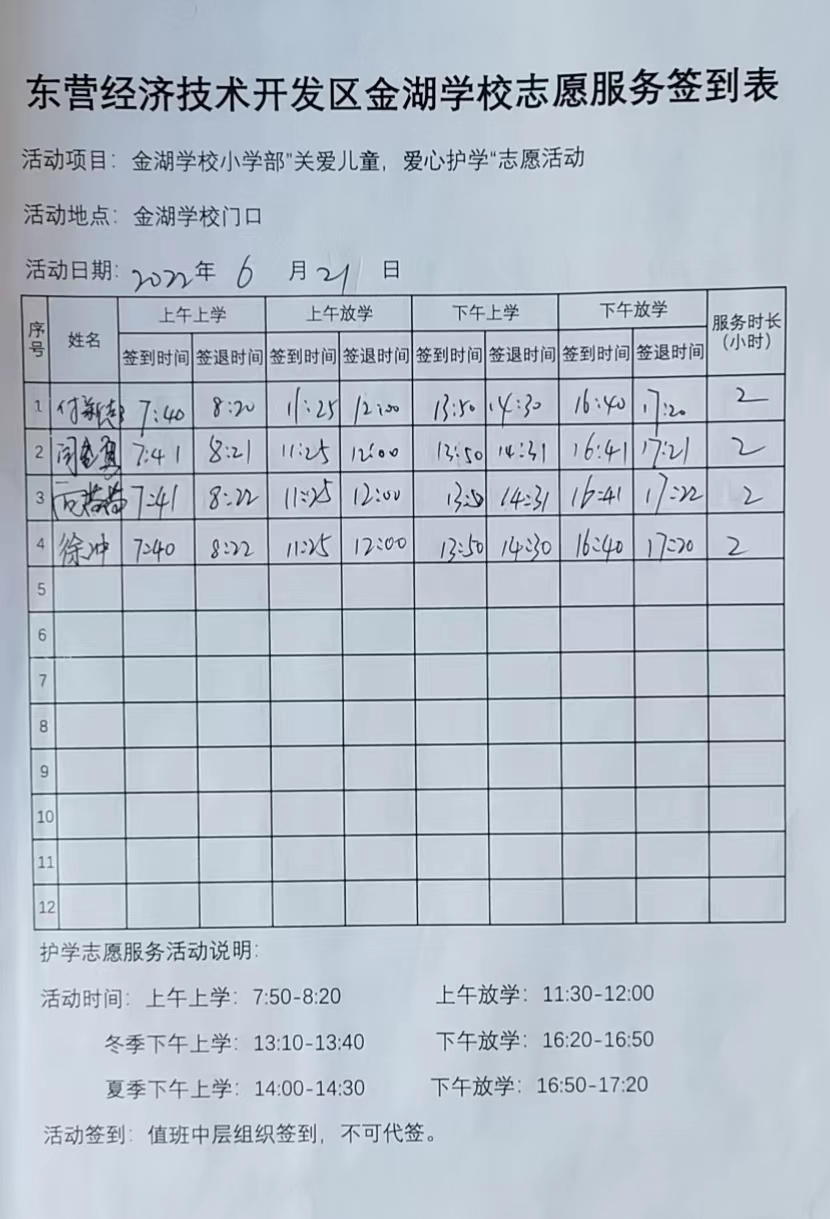 东营经济技术开发区金湖学校志愿服务签到表
活动项目：金湖学校小学部"关爱儿童，爱心护学"志愿活动
活动地点：金湖学校门口
活动日期：2022年 6 月 21 日
序号 姓名 上午上学 上午放学 下午上学 下午放学 服务时长（小时）
签到时间 签退时间 签到时间 签退时间 签到时间 签退时间 签到时间 签退时间
1 7:40 8:20 11:25 12:00 13:50 14:30 16:40 17:20 2
2 7:41 8:21 11:25 12:00 13:50 14:31 16:41 17:21 2
3 7:41 8:22 11:25 12:00 13:50 14:31 16:41 17:22 2
4 徐冲 7:40 8:22 11:25 12:00 13:50 14:30 16:40 17:20 2
5
6
7
8
9
10
11
12
护学志愿服务活动说明：
活动时间：上午上学：7:50-8:20 上午放学：11:30-12:00
冬季下午上学：13:10-13:40 下午放学：16:20-16:50
夏季下午上学：14:00-14:30 下午放学：16:50-17:20
活动签到：值班中层组织签到，不可代签。